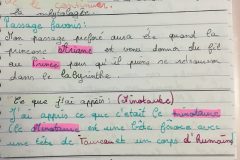 la mythologie
Passage favoris:
Mon passage préféré aura été quand la
princesse Ariane est venu donner du fil
au Prince pour qu'il puisse se retrouver
dans le labyrinthe.
Ce que j'ai appris: (Minotaure)
J'ai appris ce que c'était le minotaure
(le Minotaure est une bête féroce avec
une tête de Taureau et un corps d'humain)